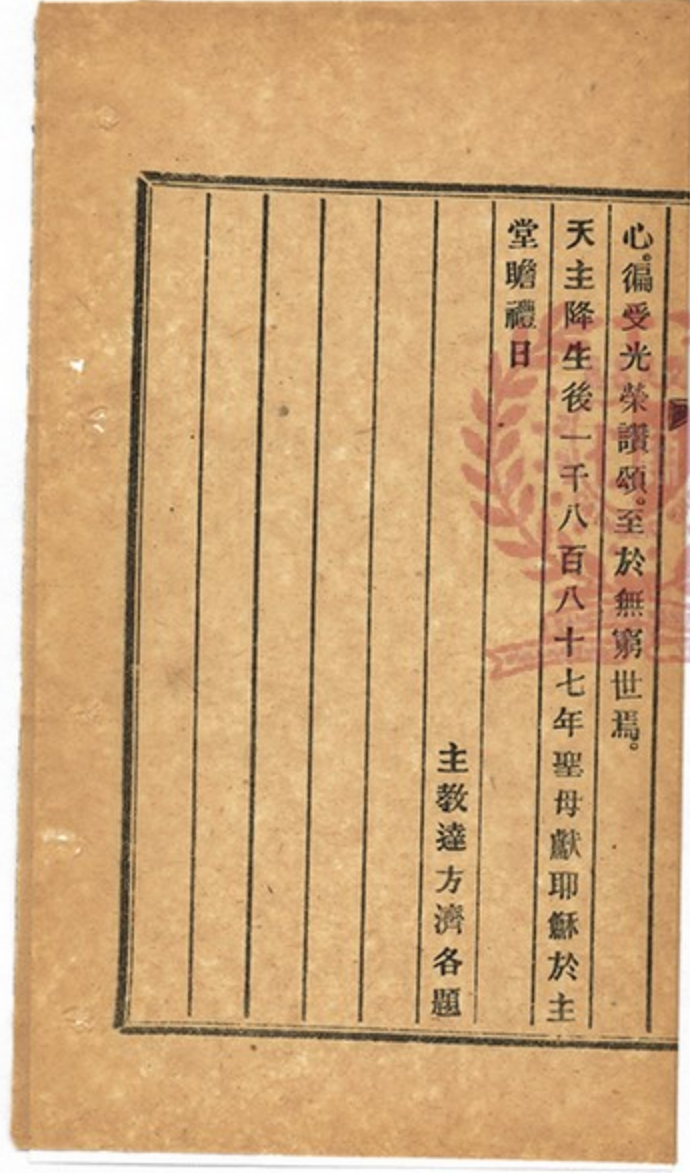 心。徧受光榮讚頌。至於無窮世焉。
天主降生後一千八百八十七年聖母獻耶穌於主
堂瞻禮日
主教達方濟各題